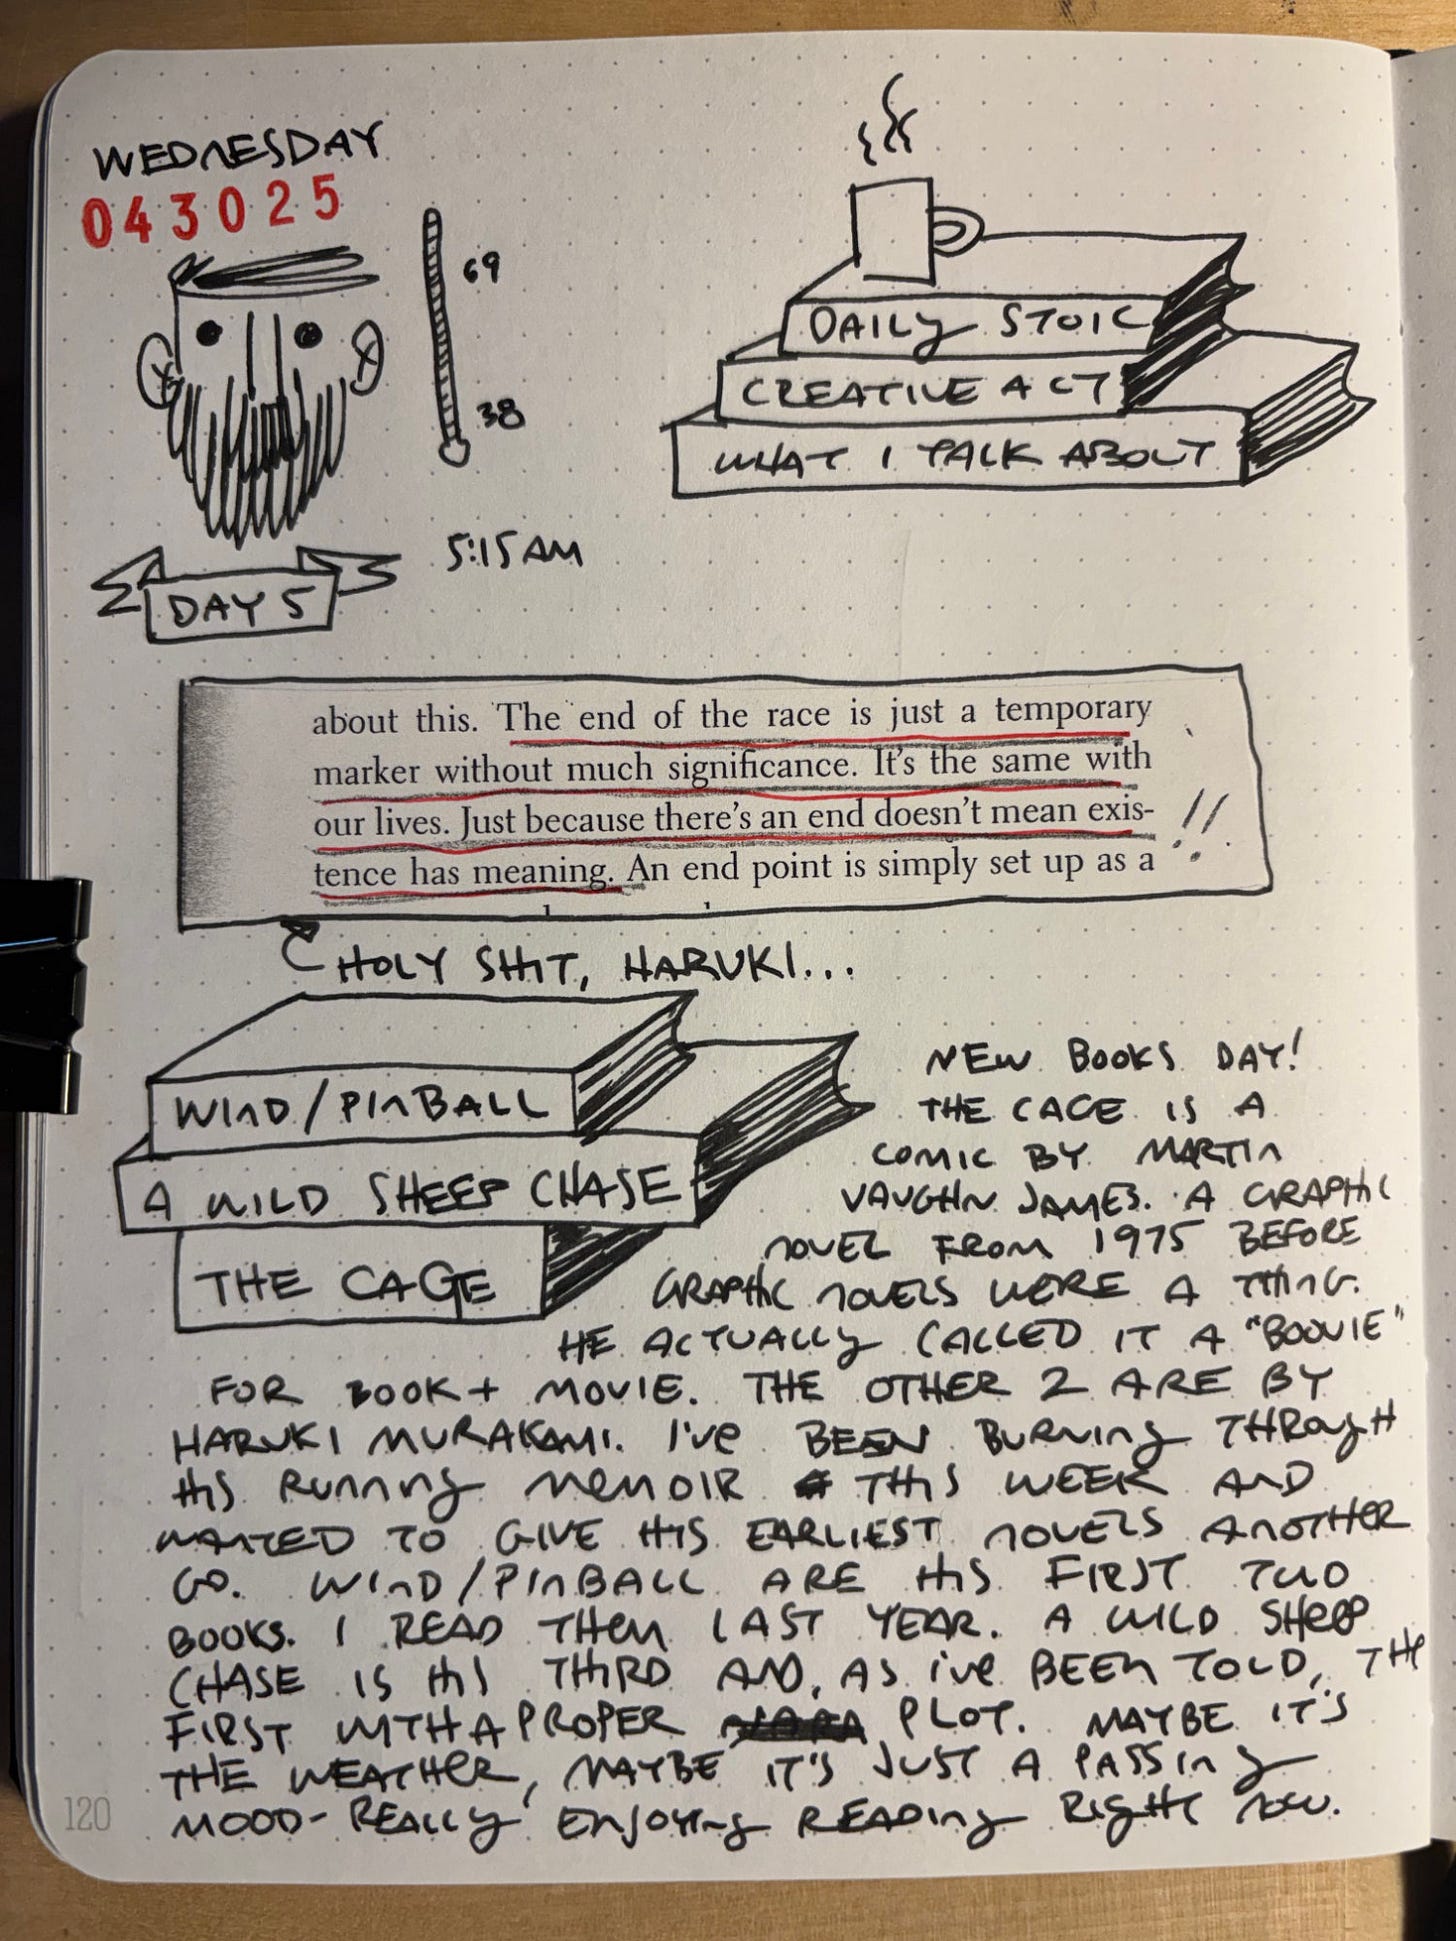 WEDNESDAY
043025
69
38
5:15AM
DAY 5
DAILY STOIC
CREATIVE ACT
WHAT I TALK ABOUT
about this. The end of the race is just a temporary
marker without much significance. It's the same with
our lives. Just because there's an end doesn't mean exis-
tence has meaning. An end point is simply set up as a
!!
HOLY SHIT, HARUKI...
WIND/PINBALL
A WILD SHEEP CHASE
THE CAGE
NEW BOOKS DAY!
THE CAGE IS A
COMIC BY MARTIN
VAUGHN JAMES. A GRAPHIC
NOVEL FROM 1975 BEFORE
GRAPHIC NOVELS WERE A THING.
HE ACTUALLY CALLED IT A "BOOVIE"
FOR BOOK + MOVIE. THE OTHER 2 ARE BY
HARUKI MURAKAMI. I'VE BEEN BURNING THROUGH
HIS RUNNING MEMOIR THIS WEEK AND
WANTED TO GIVE HIS EARLIEST NOVELS ANOTHER
GO. WIND/PINBALL ARE HIS FIRST TWO
BOOKS. I READ THEM LAST YEAR. A WILD SHEEP
CHASE IS HIS THIRD AND, AS I'VE BEEN TOLD, THE
FIRST WITH A PROPER PLOT. MAYBE IT'S
THE WEATHER, MAYBE IT'S JUST A PASSING
MOOD- REALLY ENJOYING READING RIGHT NOW.
120